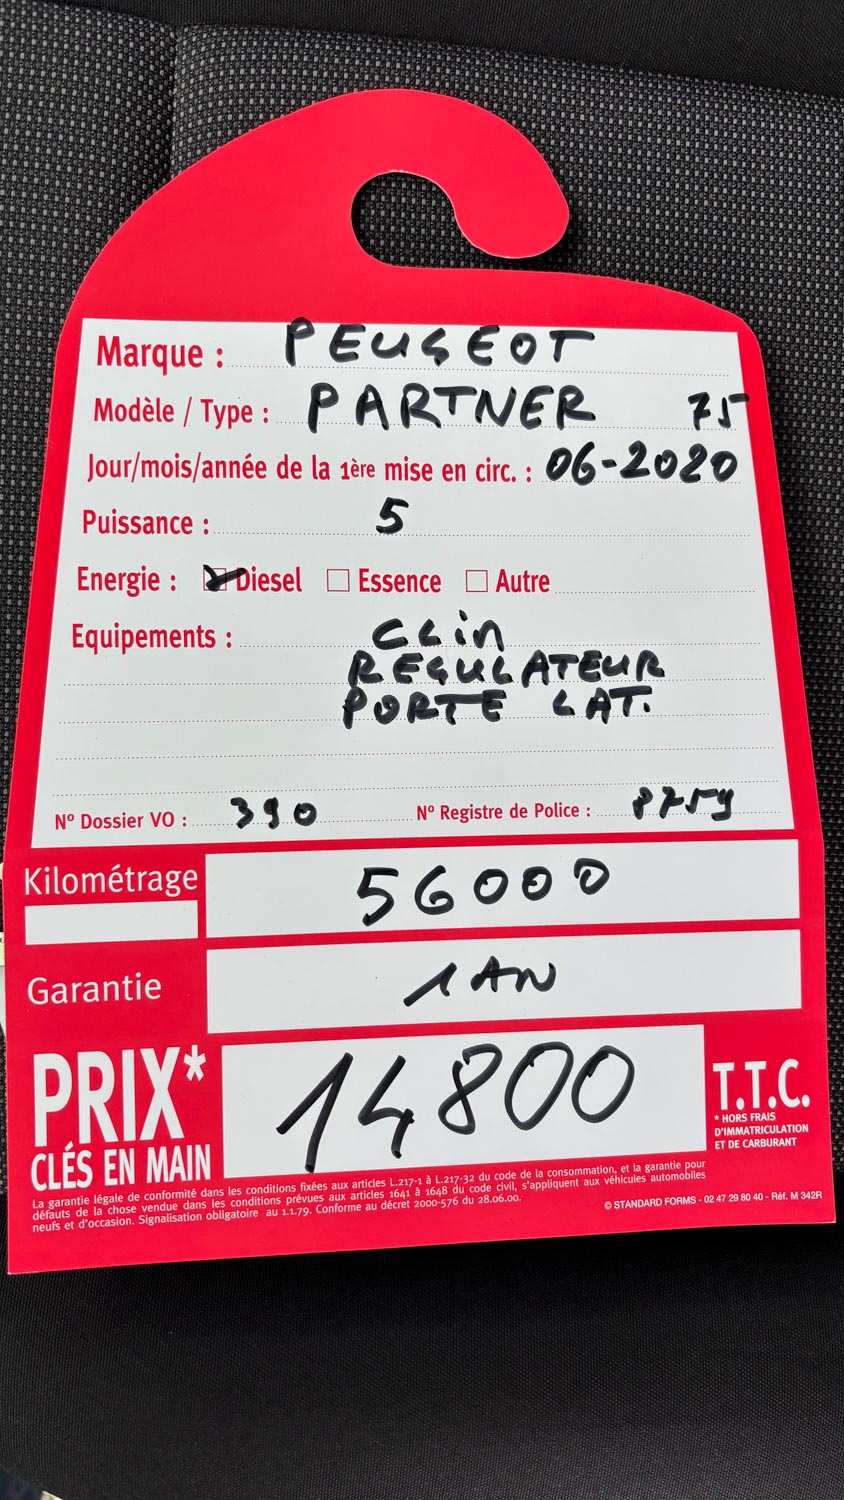 Marque : PEUGEOT
Modèle / Type : PARTNER 75
Jour/mois/année de la 1ère mise en circ. : 06-2020
Puissance : 5
Energie : Diesel Essence Autre
Equipements : CLim
REGULATEUR
PORTE LAT.
N° Dossier VO : 390 N° Registre de Police : 8759
Kilométrage 56000
Garantie 1 AN
PRIX* 14800 T.T.C.
CLÉS EN MAIN
* HORS FRAIS
D'IMMATRICULATION
ET DE CARBURANT
La garantie légale de conformité dans les conditions fixées aux articles L.217-1 à L.217-32 du code de la consommation, et la garantie pour
défauts de la chose vendue dans les conditions prévues aux articles 1641 à 1648 du code civil, s'appliquent aux véhicules automobiles
neufs et d'occasion. Signalisation obligatoire au 1.1.79. Conforme au décret 2000-576 du 28.06.00.
© STANDARD FORMS - 02 47 29 80 40 - Réf. M 342R